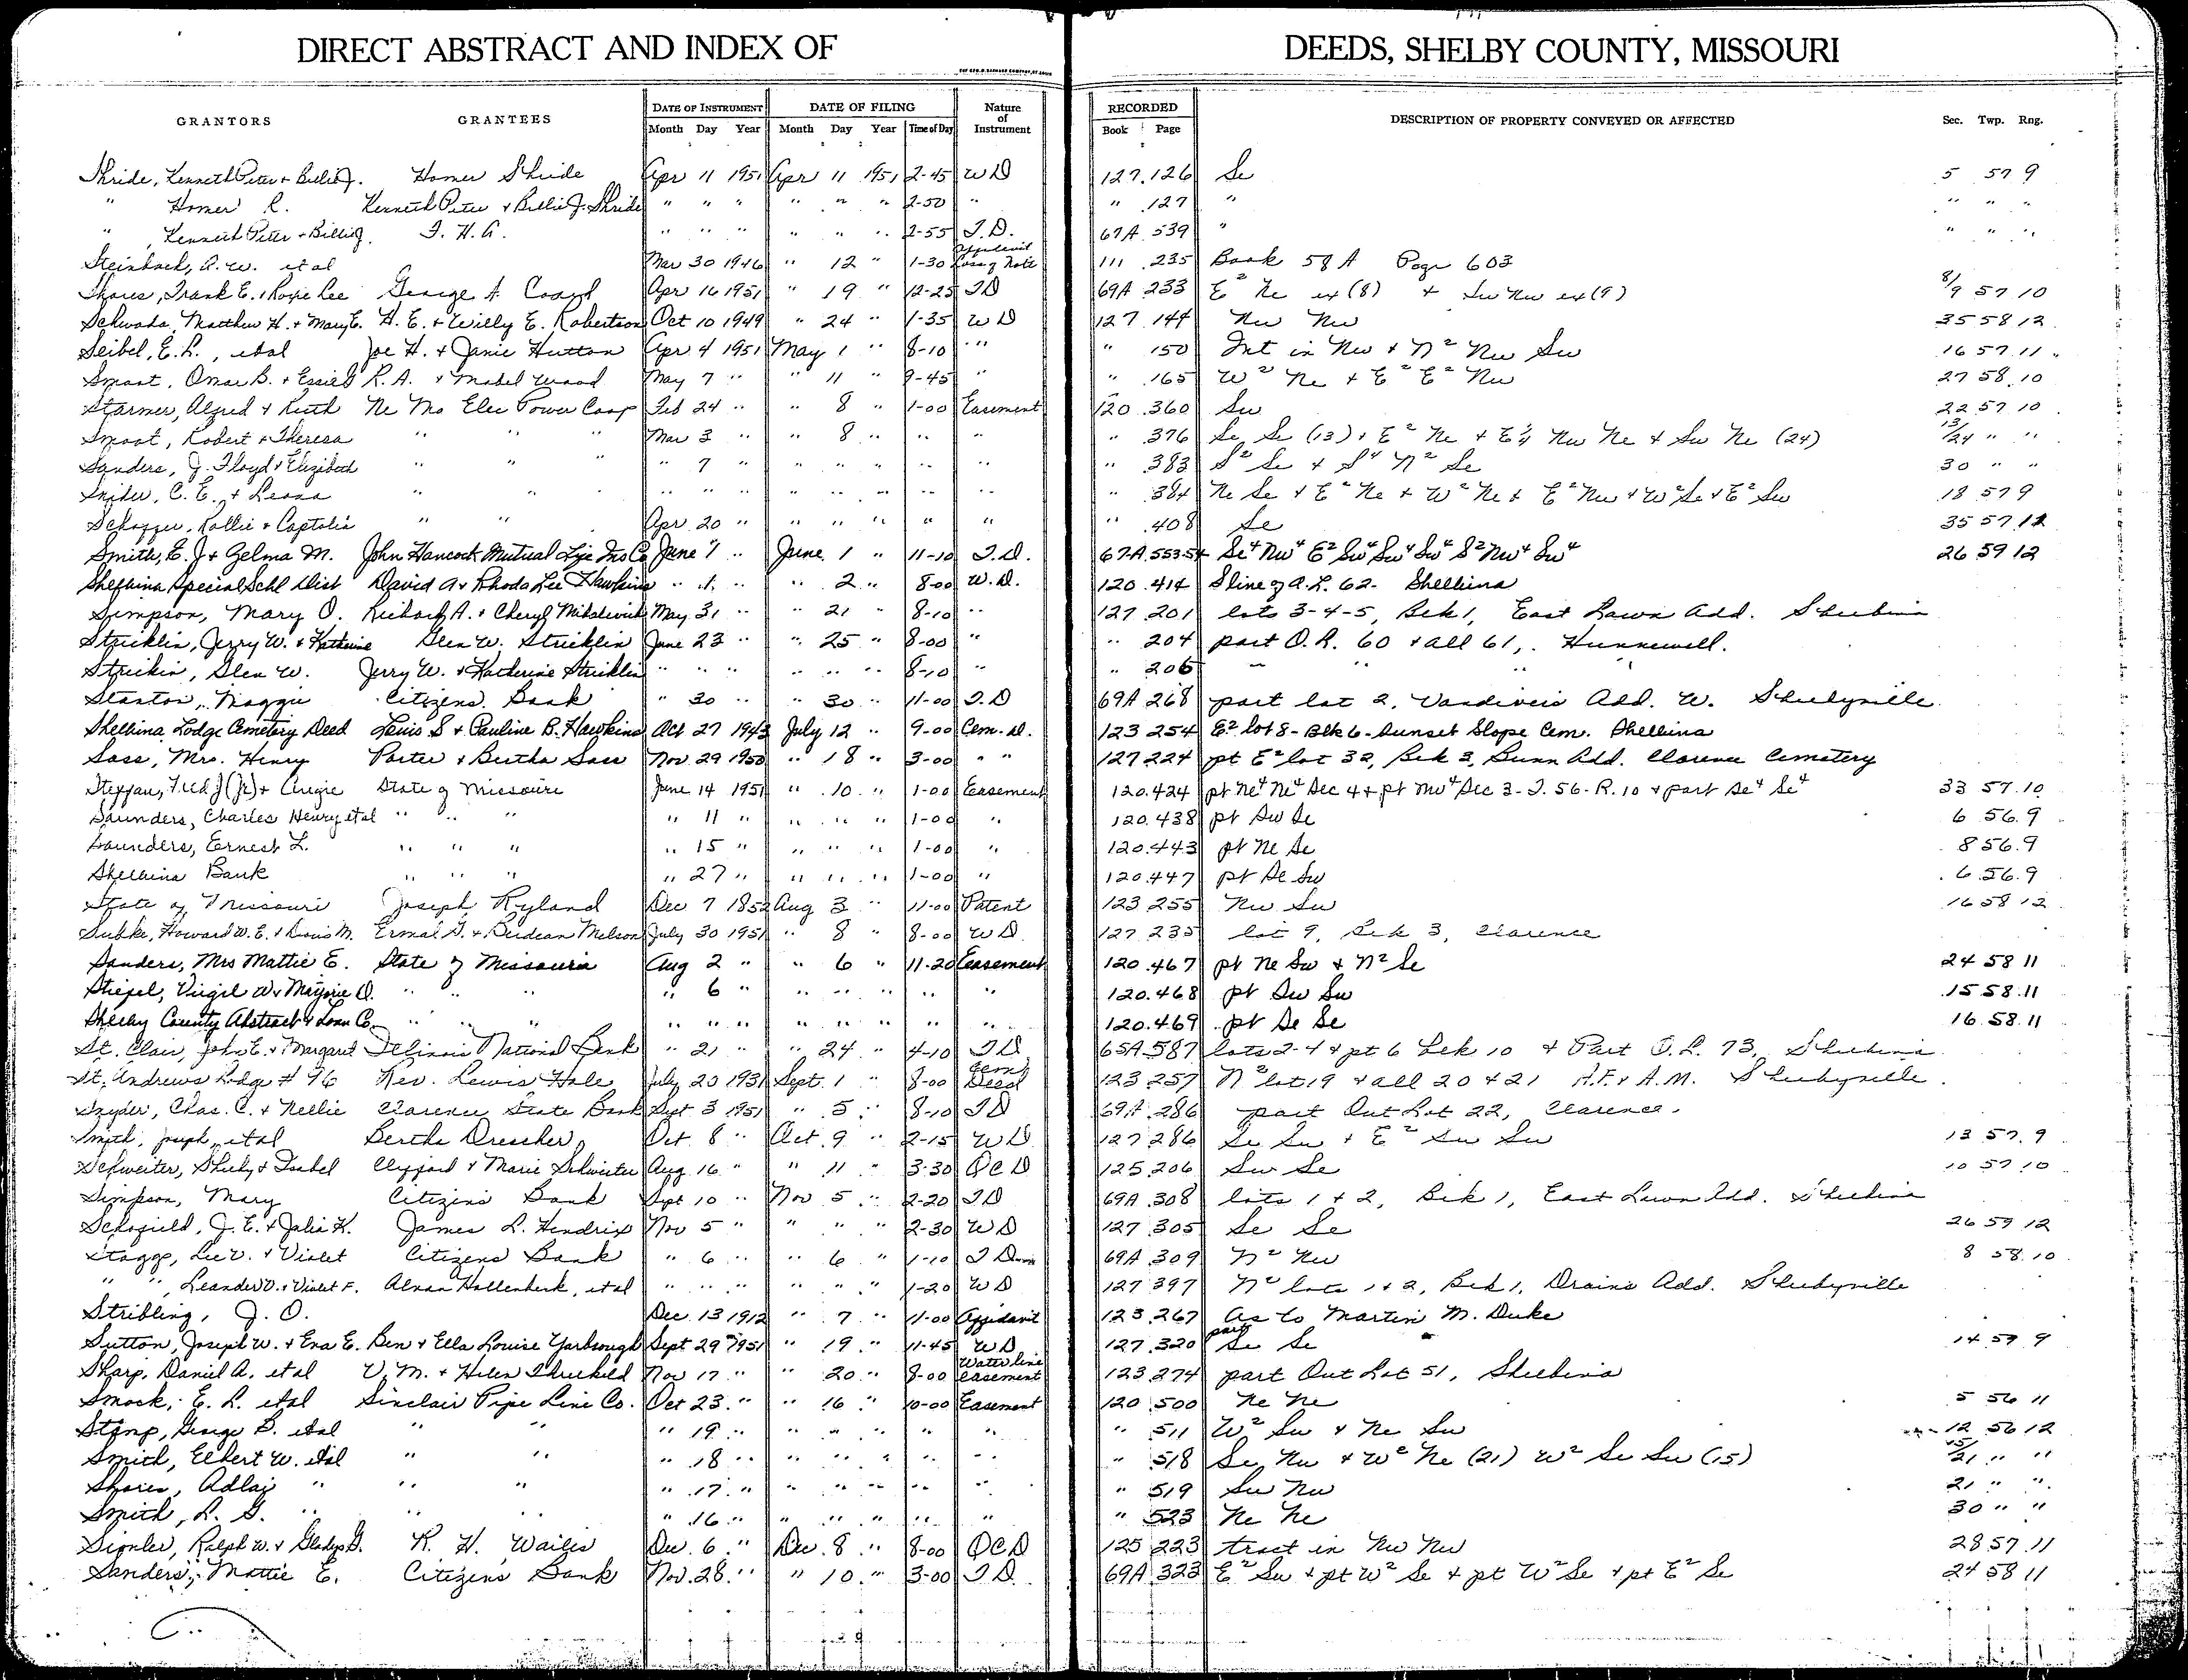 DIRECT ABSTRACT AND INDEX OF DEEDS, SHELBY COUNTY, MISSOURI
GRANTORS GRANTEES DATE OF INSTRUMENT DATE OF FILING Nature of Instrument RECORDED DESCRIPTION OF PROPERTY CONVEYED OR AFFECTED Sec. Twp. Rng.
Month Day Year Month Day Year Time of Day Book Page
Shride, Kenneth Peter + Billie J. Homer Shride Apr 11 1951 Apr 11 1951 2-45 WD 127 126 Se 5 57 9
" Homer R. Kenneth Peter + Billie J. Shride " " " " " " 2-50 " " 127 " " " "
" , Kenneth Peter + Billie J. F. H. A. " " " " " " 2-55 T.D. 67A 539 " " " "
Steinbach, A. W. et al Mar 30 1946 " 12 " 1-30 Affidavit Loss of Note 111 235 Book 58A Page 603
Shores, Frank E. + Roxie Lee George A. Coard Apr 16 1951 " 19 " 12-25 TD 69A 233 E² Ne ex (8) + Sw Nw ex (9) 8/9 57 10
Schwada, Matthew H. + Mary E. H. E. + Willy E. Robertson Oct 10 1949 " 24 " 1-35 WD 127 144 Nw Nw 35 58 12
Seibel, E. L., et al Joe H. + Janie Hutton Apr 4 1951 May 1 " 8-10 " " 150 Int in Nw + N² Nw Sw 16 57 11
Smoot, Omar B. + Essie G R. A. + Mabel Wood May 7 " " 11 " 9-45 " " 165 W² Ne + E² E² Nw 27 58 10
Starmer, Alfred + Ruth Ne Mo Elec Power Coop Feb 24 " " 8 " 1-00 Easement 120 360 Sw 22 57 10
Smoot, Robert + Theresa " " " Mar 3 " " 8 " " " " 376 Se Se (13) + E² Ne + E½ Nw Ne + Sw Ne (24) 13/24 " "
Sanders, J. Floyd + Elizabeth " " " " 7 " " " " " " " 383 S² Se + S⁴ N² Se 30 " "
Snider, C. E. + Leona " " " " " " " " " " " " 384 Ne Se + E² Ne + W² Ne + E² Nw + W² Se + E² Sw 18 57 9
Schaffer, Rollie + Captolia " " Apr 20 " " " " " " " 408 Se 35 57 12
Smith, E. J. + Zelma M. John Hancock Mutual Life Ins Co June 1 " June 1 " 11-10 T.D. 67A 553-54 Se⁴ Nw⁴ E² Sw⁴ Sw⁴ Sw⁴ S² Nw⁴ Sw⁴ 26 59 12
Shelbina Special Schl Dist David A + Rhoda Lee Hawkins " 1 " " 2 " 8-00 W.D. 120 414 S line of O.L. 62 - Shelbina
Simpson, Mary O. Richard A. + Cheryl May 31 " " 21 " 8-10 " 127 201 lots 3-4-5, Blk 1, East Lawn Add. Shelbina
Stricklin, Jerry W. + Katherine Glen W. Stricklin June 23 " " 25 " 8-00 " " 204 part O.L. 60 + all 61, Hunnewell.
Strickin, Glen W. Jerry W. + Katherine Stricklin " " " " " " 8-10 " " 206 " " " "
Stanton, Maggie Citizens Bank " 30 " " 30 " 11-00 T.D 69A 268 part lot 2, Vandivers Add. W. Shelbyville
Shelbina Lodge Cemetery Deed Lewis S + Pauline B. Hawkins Oct 27 1943 July 12 " 9-00 Cem. D. 123 254 E² lot 8 - Blk 6 - Sunset Slope Cem. Shelbina
Sass, Mrs. Henry Porter + Bertha Sass Nov. 29 1950 " 18 " 3-00 " " 127 224 pt E² lot 32, Blk 3, Bunn Add. Clarence Cemetery
Steffan, Fred J (Jr) + Angie State of Missouri June 14 1951 " 10 " 1-00 Easement 120 424 pt Ne⁴ Ne⁴ Sec 4 + pt Nw⁴ Sec 3 - T. 56 - R. 10 + part Se⁴ Se⁴ 33 57 10
Saunders, Charles Henry et al " " " " 11 " " " " 1-00 " 120 438 pt Sw Se 6 56 9
Saunders, Ernest L. " " " " 15 " " " " 1-00 " 120 443 pt Ne Se 8 56 9
Shelbina Bank " " " " 27 " " " " 1-00 " 120 447 pt Se Sw 6 56 9
State of Missouri Joseph Ryland Dec 7 1852 Aug 3 " 11-00 Patent 123 255 Nw Sw 16 58 12
Subke, Howard W. E. + Doris M. Ermal G. + Deidean Melson July 30 1951 " 8 " 8-00 WD 127 235 lot 9, Blk 3, Clarence
Sanders, Mrs Mattie E. State of Missouri Aug 2 " " 6 " 11-20 Easement 120 467 pt Ne Sw + N² Se 24 58 11
Stiefel, Virgil W + Marjorie O. " " " " 6 " " " " " " 120 468 pt Sw Sw 15 58 11
Shelby County Abstract + Loan Co. " " " " " " " " " " " 120 469 pt Se Se 16 58 11
St. Clair, John E. + Margaret Illinois National Bank " 21 " " 24 " 4-10 TD 65A 587 lots 2-4 + pt 6 Blk 10 + Part O.L. 73, Shelbina
St. Andrews Lodge # 96 Rev. Lewis Hale July 20 1931 Sept. 1 " 8-00 Cem. Deed 123 257 N² lot 19 + all 20 + 21 A.F. + A.M. Shelbyville
Snyder, Chas. C. + Nellie Clarence State Bank Sept 3 1951 " 5 " 8-10 TD 69A 286 part Out Lot 22, Clarence.
Smith, Joseph, et al Bertha Drescher Oct 8 " Oct. 9 " 2-15 WD 127 286 Se Sw + E² Sw Sw 13 57 9
Schweiter, Shelby + Isabel Clifford + Marie Schwieter Aug 16 " " 11 " 3-30 QCD 125 206 Sw Se 10 57 10
Simpson, Mary Citizens Bank Sept 10 " Nov 5 " 2-20 TD 69A 308 lots 1 + 2, Blk 1, East Lawn Add. Shelbina
Schofield, J. E. + Julia K. James L. Hendrix Nov 5 " " " " 2-30 WD 127 305 Se Se 26 59 12
Stagge, Lee V. + Violet Citizens Bank " 6 " " 6 " 1-10 TD 69A 309 N² Nw 8 58 10
" ", Leander V. + Violet F. Alvan Hollenbeck, et al " " " " " " 1-20 WD 127 397 N² lots 1 + 2, Blk 1, Drains Add. Shelbyville
Stribling, J. O. Dec. 13 1912 " 7 " 11-00 Affidavit 123 267 As to Martin M. Duke
Sutton, Joseph W. + Ena E. Ben + Ella Louise Yarbrough Sept 29 1951 " 19 " 11-45 WD 127 320 part Se Se 14 59 9
Sharp, Daniel A. et al V. M. + Helen Threlkeld Nov 17 " " 20 " 8-00 Water line easement 123 274 part Out Lot 51, Shelbina
Smock, E. L. et al Sinclair Pipe Line Co. Oct 23 " " 16 " 10-00 Easement 120 500 Ne Ne 5 56 11
Stamp, George B. et al " " " 19 " " " " " " " 511 W² Sw + Ne Sw 12 56 12
Smith, Elbert W. et al " " " 18 " " " " " " " 518 Se Nw + W² Ne (21) W² Se Sw (15) 15/21 " "
Shores, Adlai " " " " " 17 " " " " " " " 519 Sw Nw 21 " "
Smith, L. G. " " " " 16 " " " " " " " 523 Ne Ne 30 " "
Sigler, Ralph W. + Gladys G. R. H. Wailes Dec. 6 " Dec. 8 " 8-00 QCD 125 223 tract in Nw Nw 28 57 11
Sanders, Mattie E. Citizens Bank Nov. 28 " " 10 " 3-00 TD 69A 323 E² Sw + pt W² Se + pt W² Se + pt E² Se 24 58 11